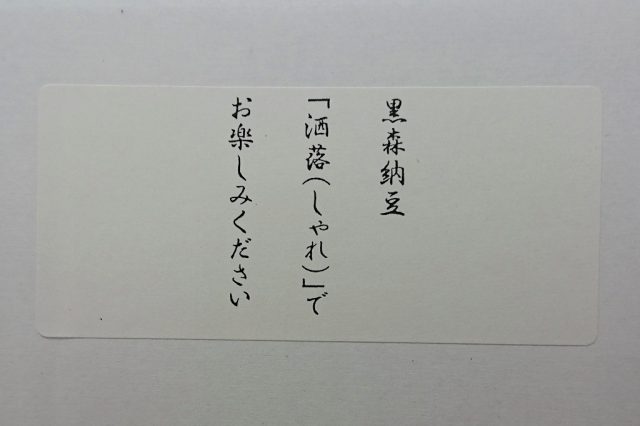 黒森納豆
「洒落(しゃれ)」で
お楽しみください